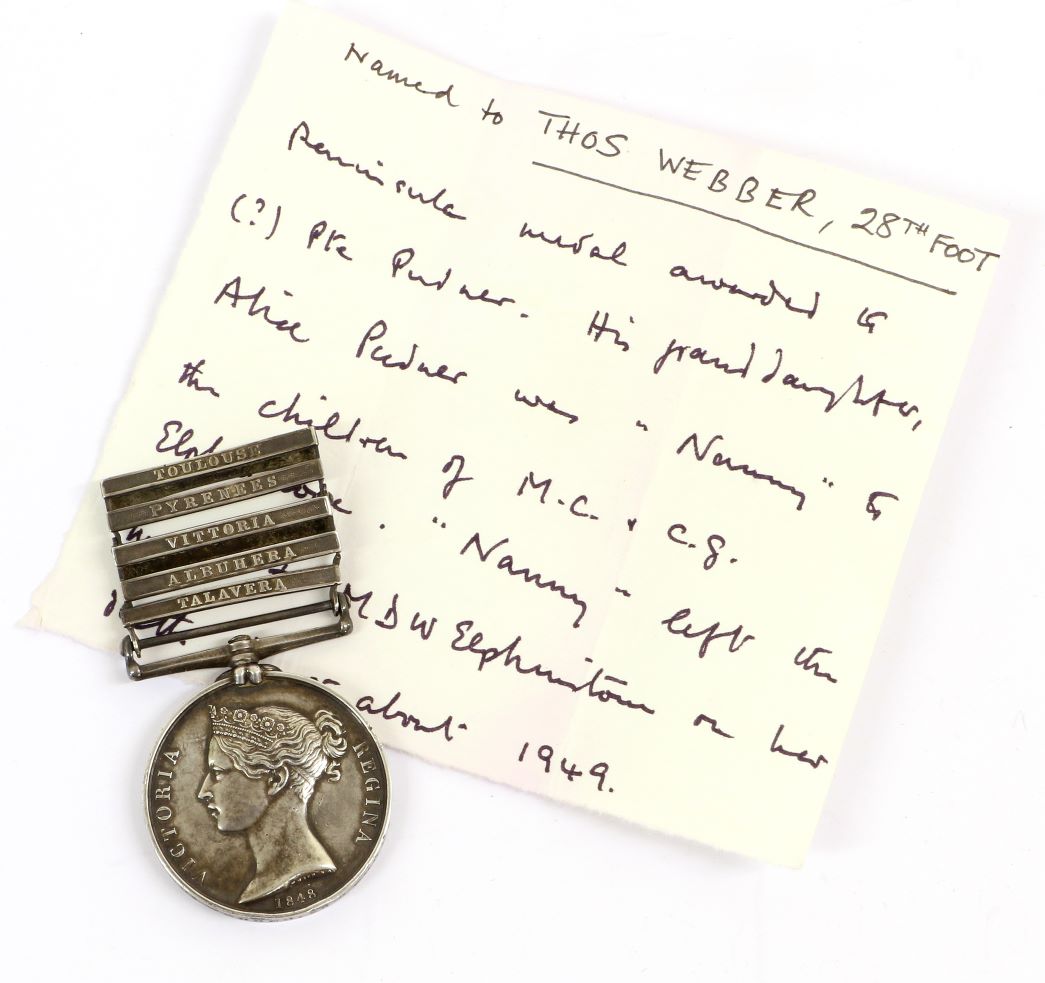 Named to THOS WEBBER, 28TH FOOT
Peninsula medal awarded to
(?) Pte Pudner. His granddaughter,
Alice Pudner was "Nanny" to
the children of M.C. & C.G.
Elph
. "Nanny" left the
MDW Elphinstone on her
about 1949.
TOULOUSE
PYRENEES
VITTORIA
ALBUHERA
TALAVERA
VICTORIA REGINA
1848